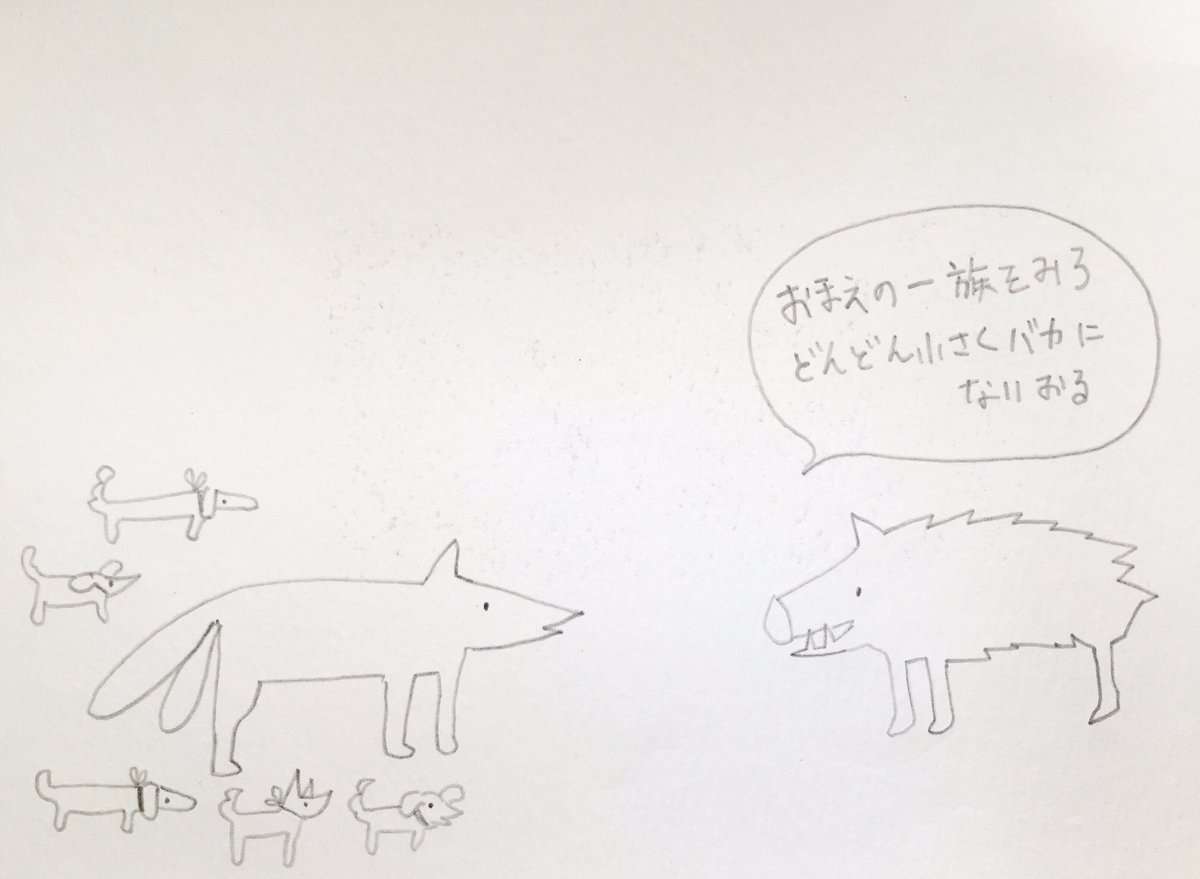 おまえの一族をみろ
どんどん小さくバカに
なりおる